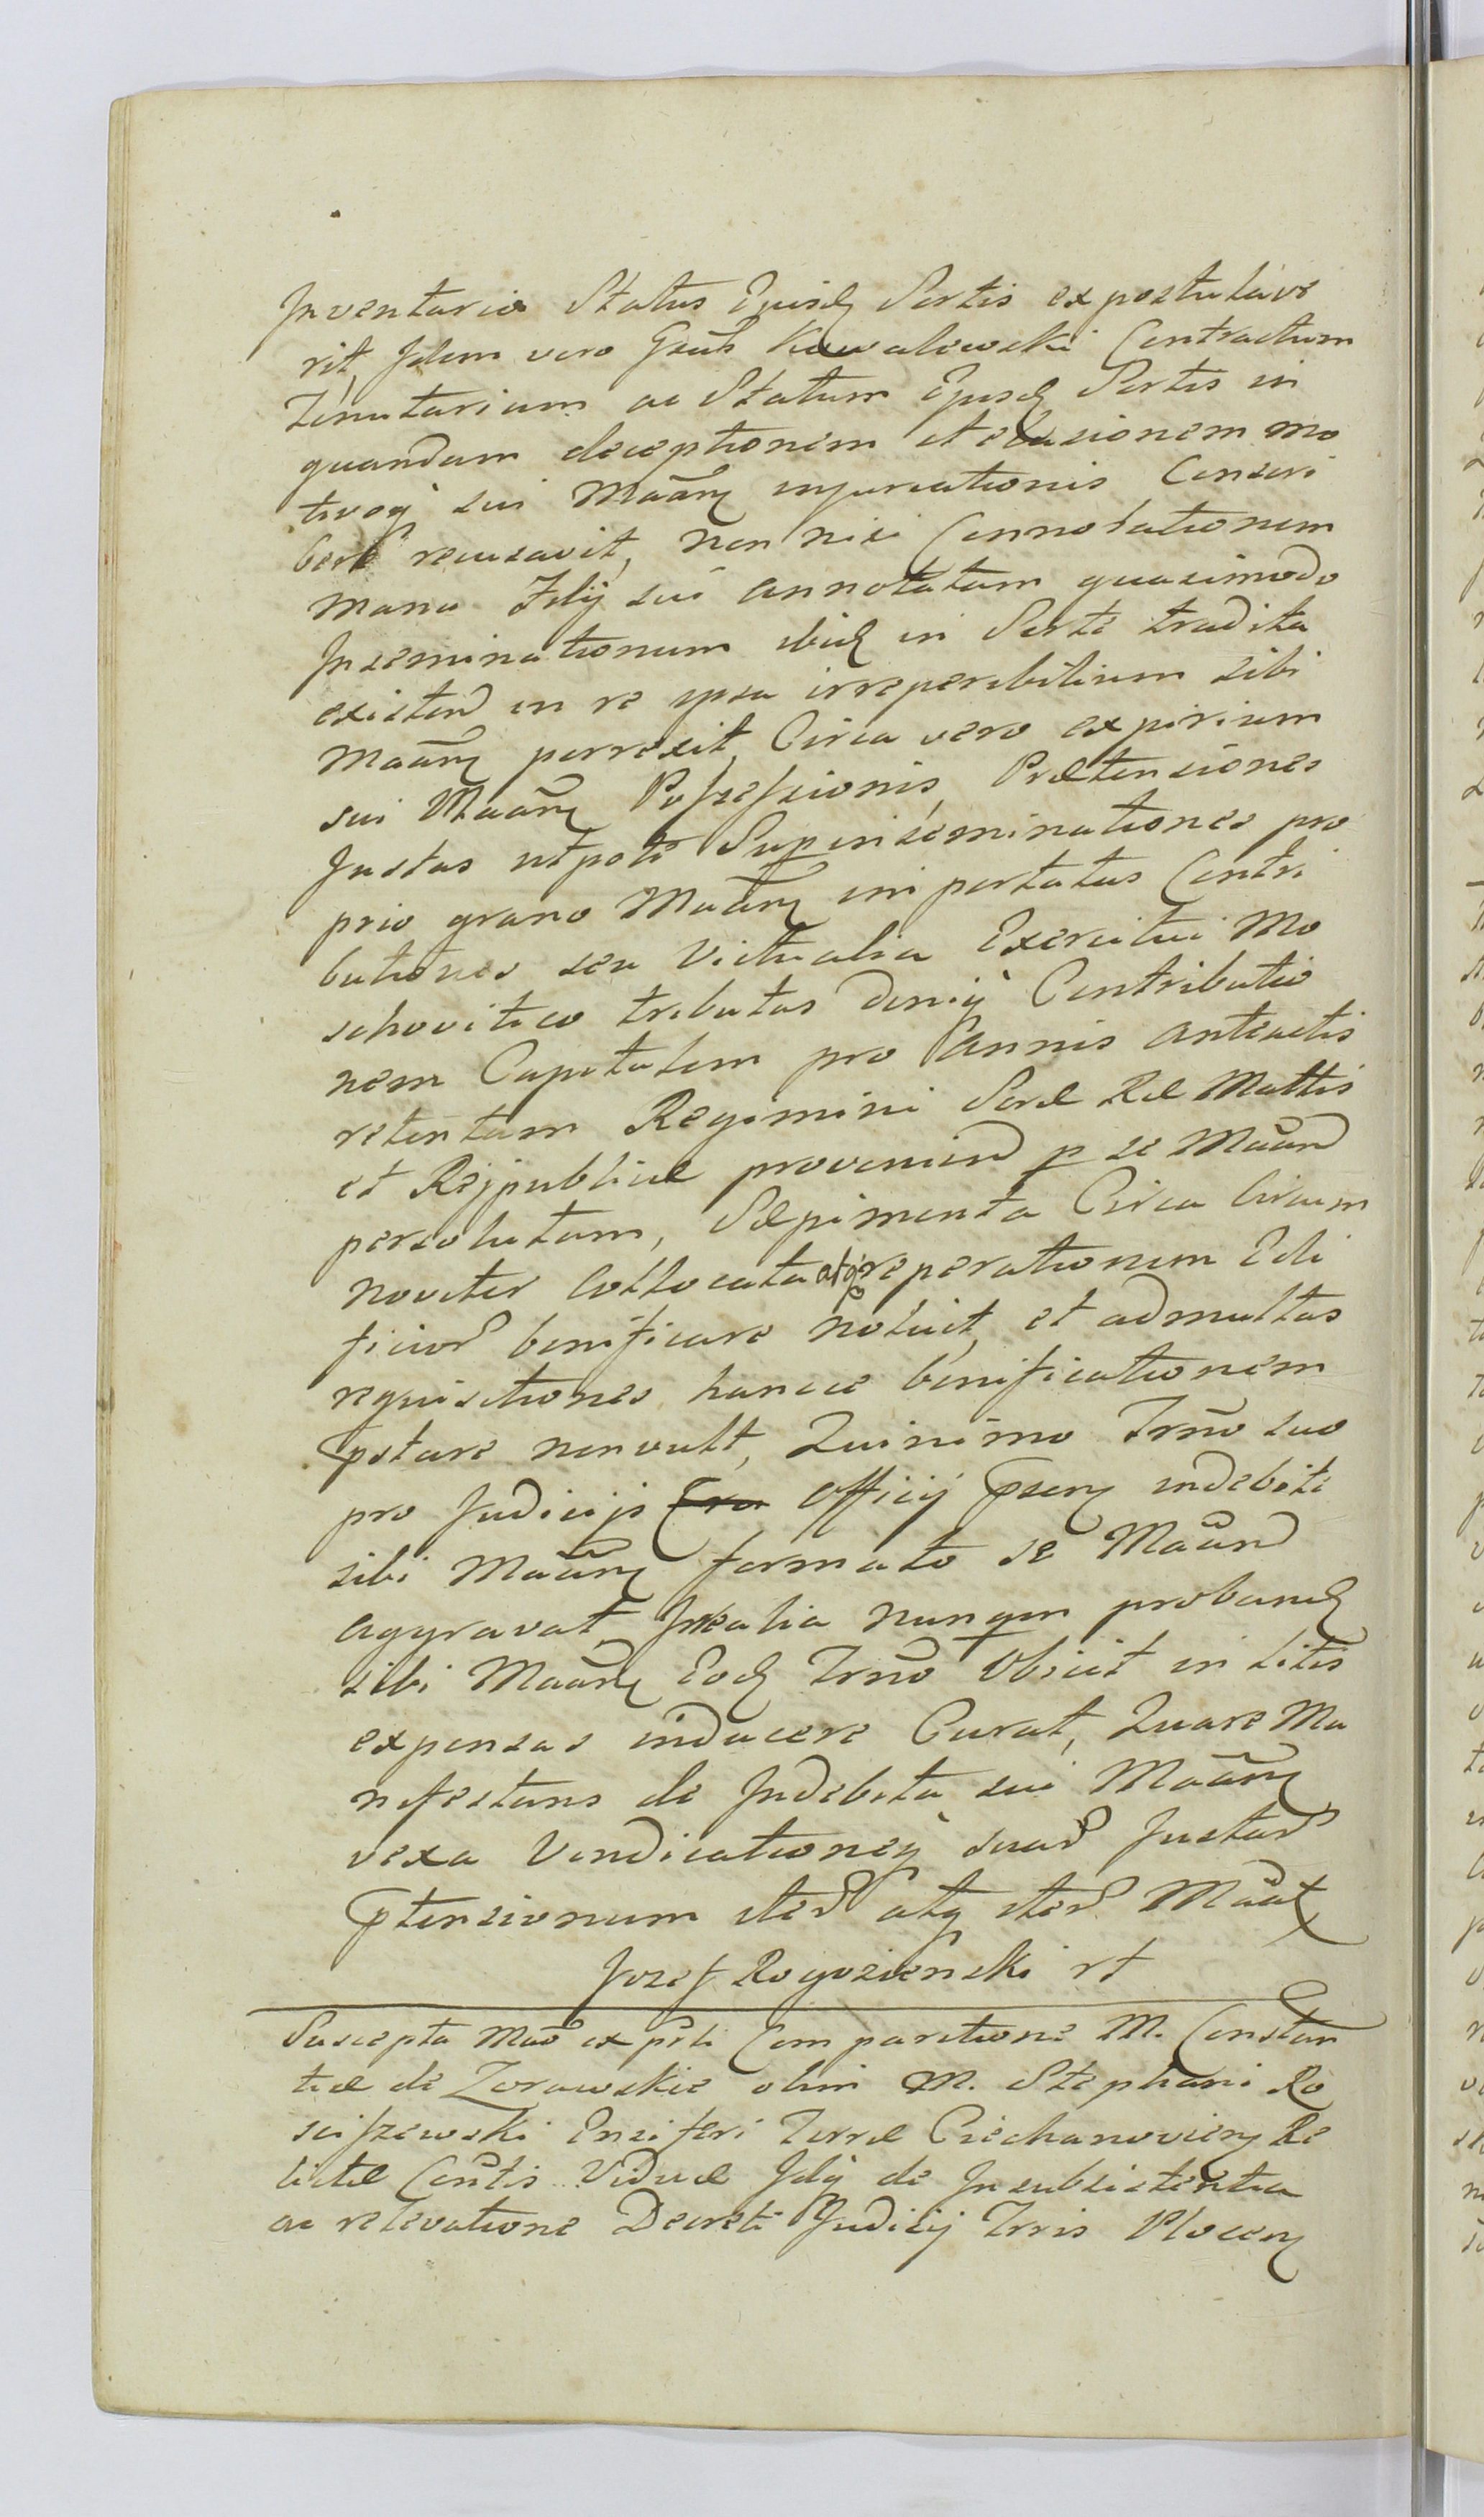 Inventario Status Ejusd Sortis expostulave
rit, Idem vero Gsus Kowalewski Contractum
Tenutarium ac Statum Ejusd Sortis in
quandam deceptionem et elusionem mo
tivoq sui Maān injuriationis Conscri
bere recusavit, non nisi Connotationem
manu Filij sui annotatam quasimodo
Inseminationum ibid in Sorte tradita
existen in re ipsa irreperibilium sibi
Maān porrexit, Circa vero expirium
sui Maān Possessionis, Prætensiones
Justas utpote Supinseminationes pro
prio grano Maān importatas Contri
butiones seu Victualia Exercitui Mo
schovitico tributas deniq Contributio
nem Capitalem pro Annis anteactis
retentam Regimini Seræ Ræ Mattis
et Reipublicæ provenien p se Maān
persolutam, Sæpimenta Circa
noviter Collocata atq reperationem Edi
ficior benificare noluit, et admultas
requisitiones hancce benificationem
pstare nonvult, Quinimo Trno suo
pro Judicijs Officij psen indebite
sibi Maān formato se Maān
aggravat, nunqm proband
sibi Maān Eod Trno Obicit in litis
expensas inducere Curat, Quare Ma
nifestans de Indebita sui Maān
vexa Vindicationeq suar Justar
ptensionum iter atq iter Maāt
Jozef Rogozienski rt
Suscepta Mao ex psti Comparitione M. Constan
tiæ de Zorawskie olim M. Stephani Ro
sciszewski Ensiferi Terræ Ciechanovien Re
lictæ Contis Viduæ Idq de Insubsistentia
ac relevatione Decreti Judicij Trris Plocen